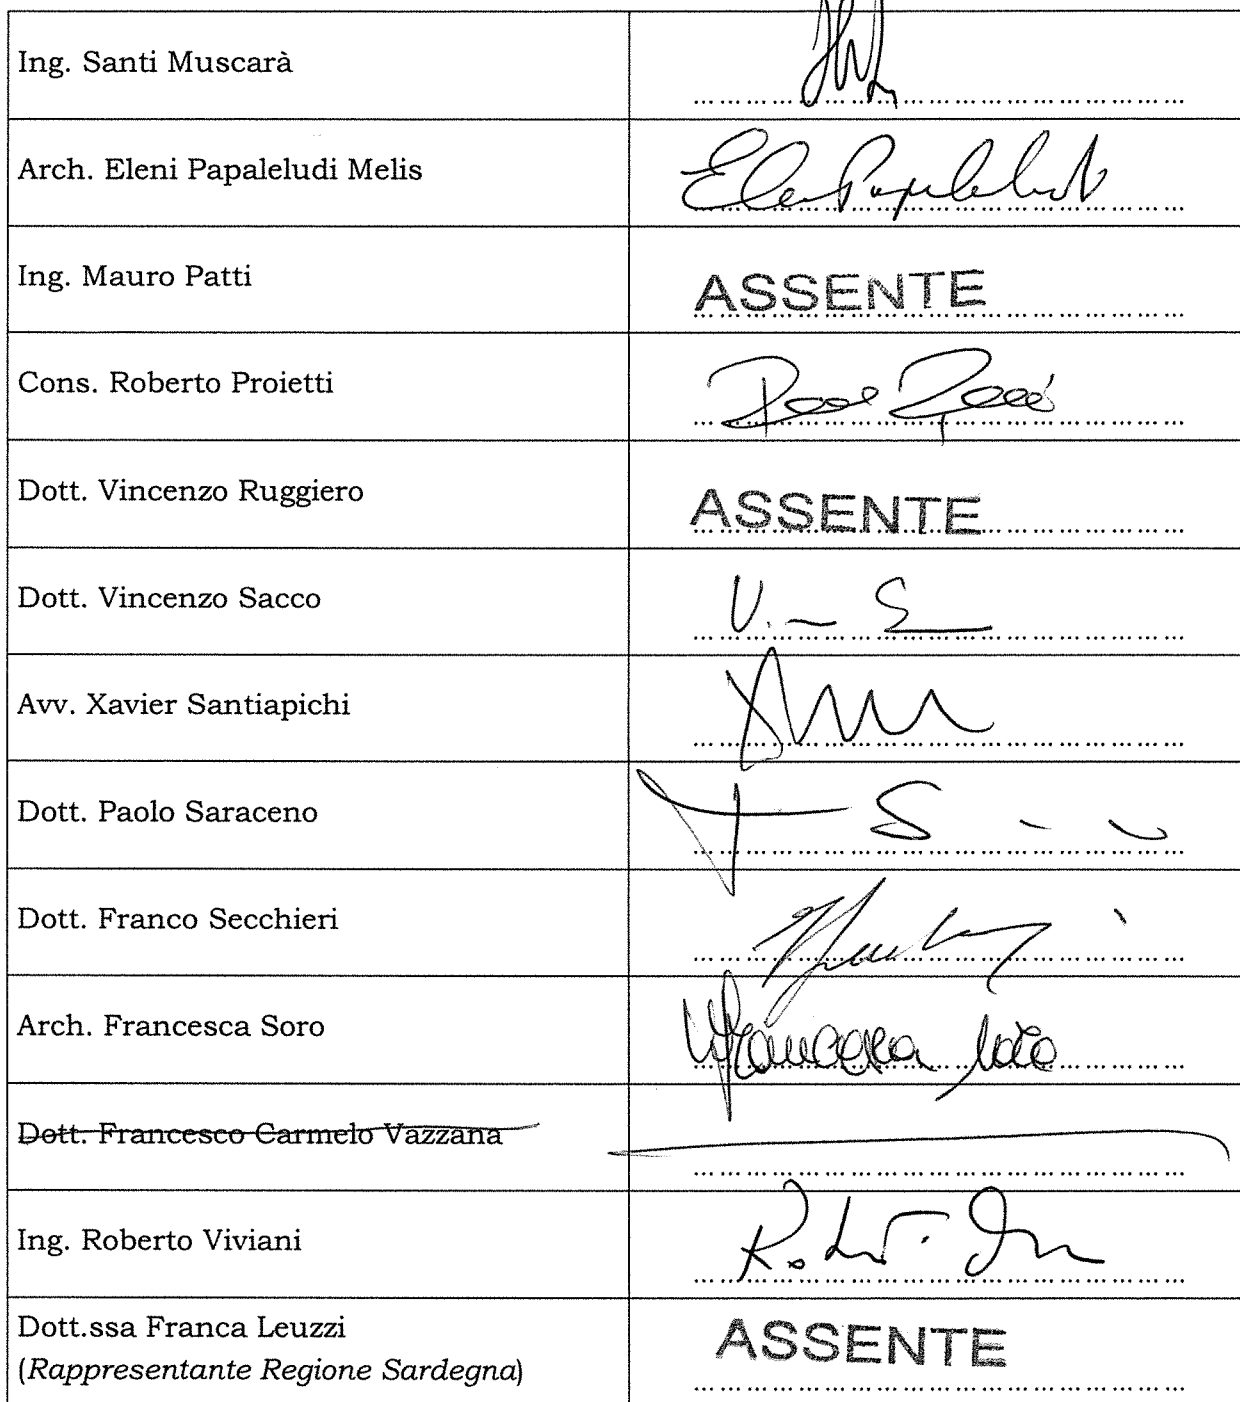 Ing. Santi Muscarà
Arch. Eleni Papaleludi Melis
Ing. Mauro Patti
ASSENTE
Cons. Roberto Proietti
Dott. Vincenzo Ruggiero
ASSENTE
Dott. Vincenzo Sacco
Avv. Xavier Santiapichi
Dott. Paolo Saraceno
Dott. Franco Secchieri
Arch. Francesca Soro
Francesca Soro
Dott. Francesco Carmelo Vazzana
Ing. Roberto Viviani
Dott.ssa Franca Leuzzi
(Rappresentante Regione Sardegna)
ASSENTE